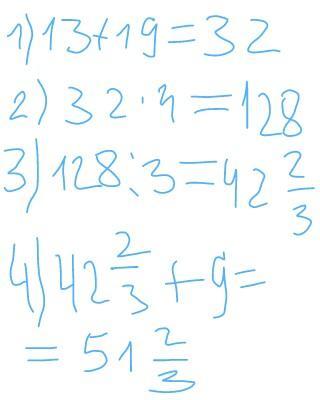 1) 13+19=32
2) 32·4=128
3) 128:3=42 2/3
4) 42 2/3 +9=
=51 2/3